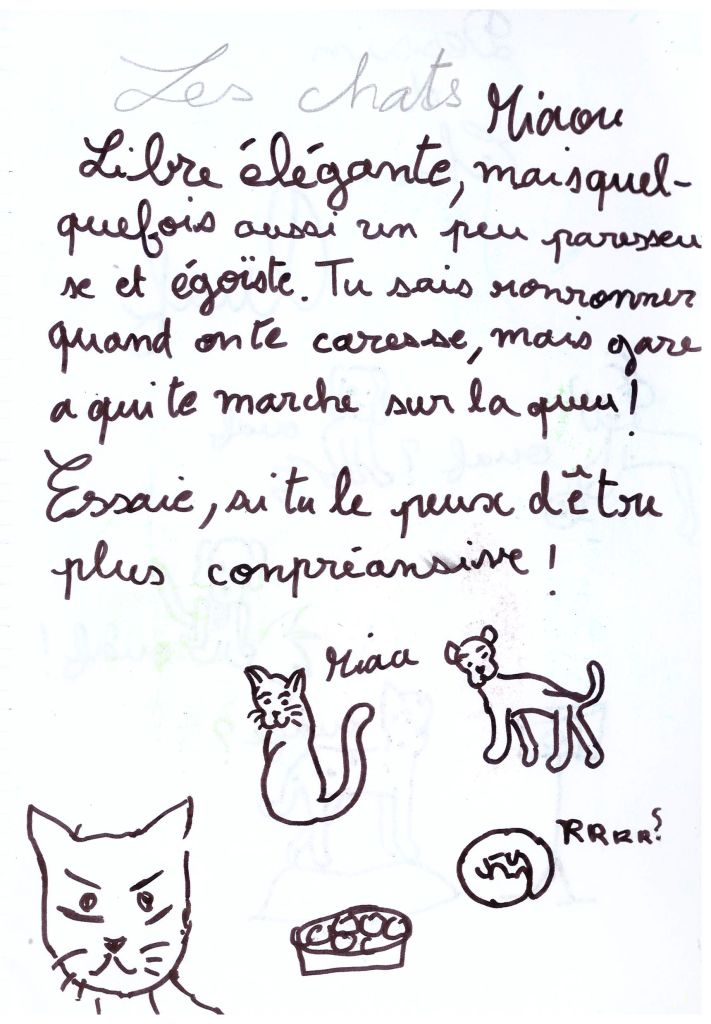 Les chats
Miaou
Libre élégante, mais quel-
quefois aussi un peu paresseu
se et égoïste. Tu sais ronronner
quand on te caresse, mais gare
a qui te marche sur la queu !
Essaie, si tu le peux d'être
plus conpréansive !
Miaa
RRRR?